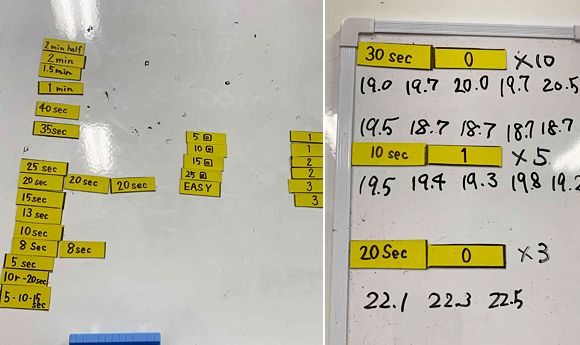 2 min half
2 min
1.5 min
1 min
40 sec
35 sec
25 sec
20 sec 20 sec 20 sec
15 sec
13 sec
10 sec
8 sec 8 sec
5 sec
10r-20sec
5-10-15 sec
5 回
10 回
15 回
25 回
EASY
1
1
2
2
3
3
30 sec 0 ×10
19.0 19.7 20.0 19.7 20.5
19.5 18.7 18.7 18.7 18.7
10 sec 1 ×5
19.5 19.4 19.3 19.8 19.2
20 sec 0 ×3
22.1 22.3 22.5